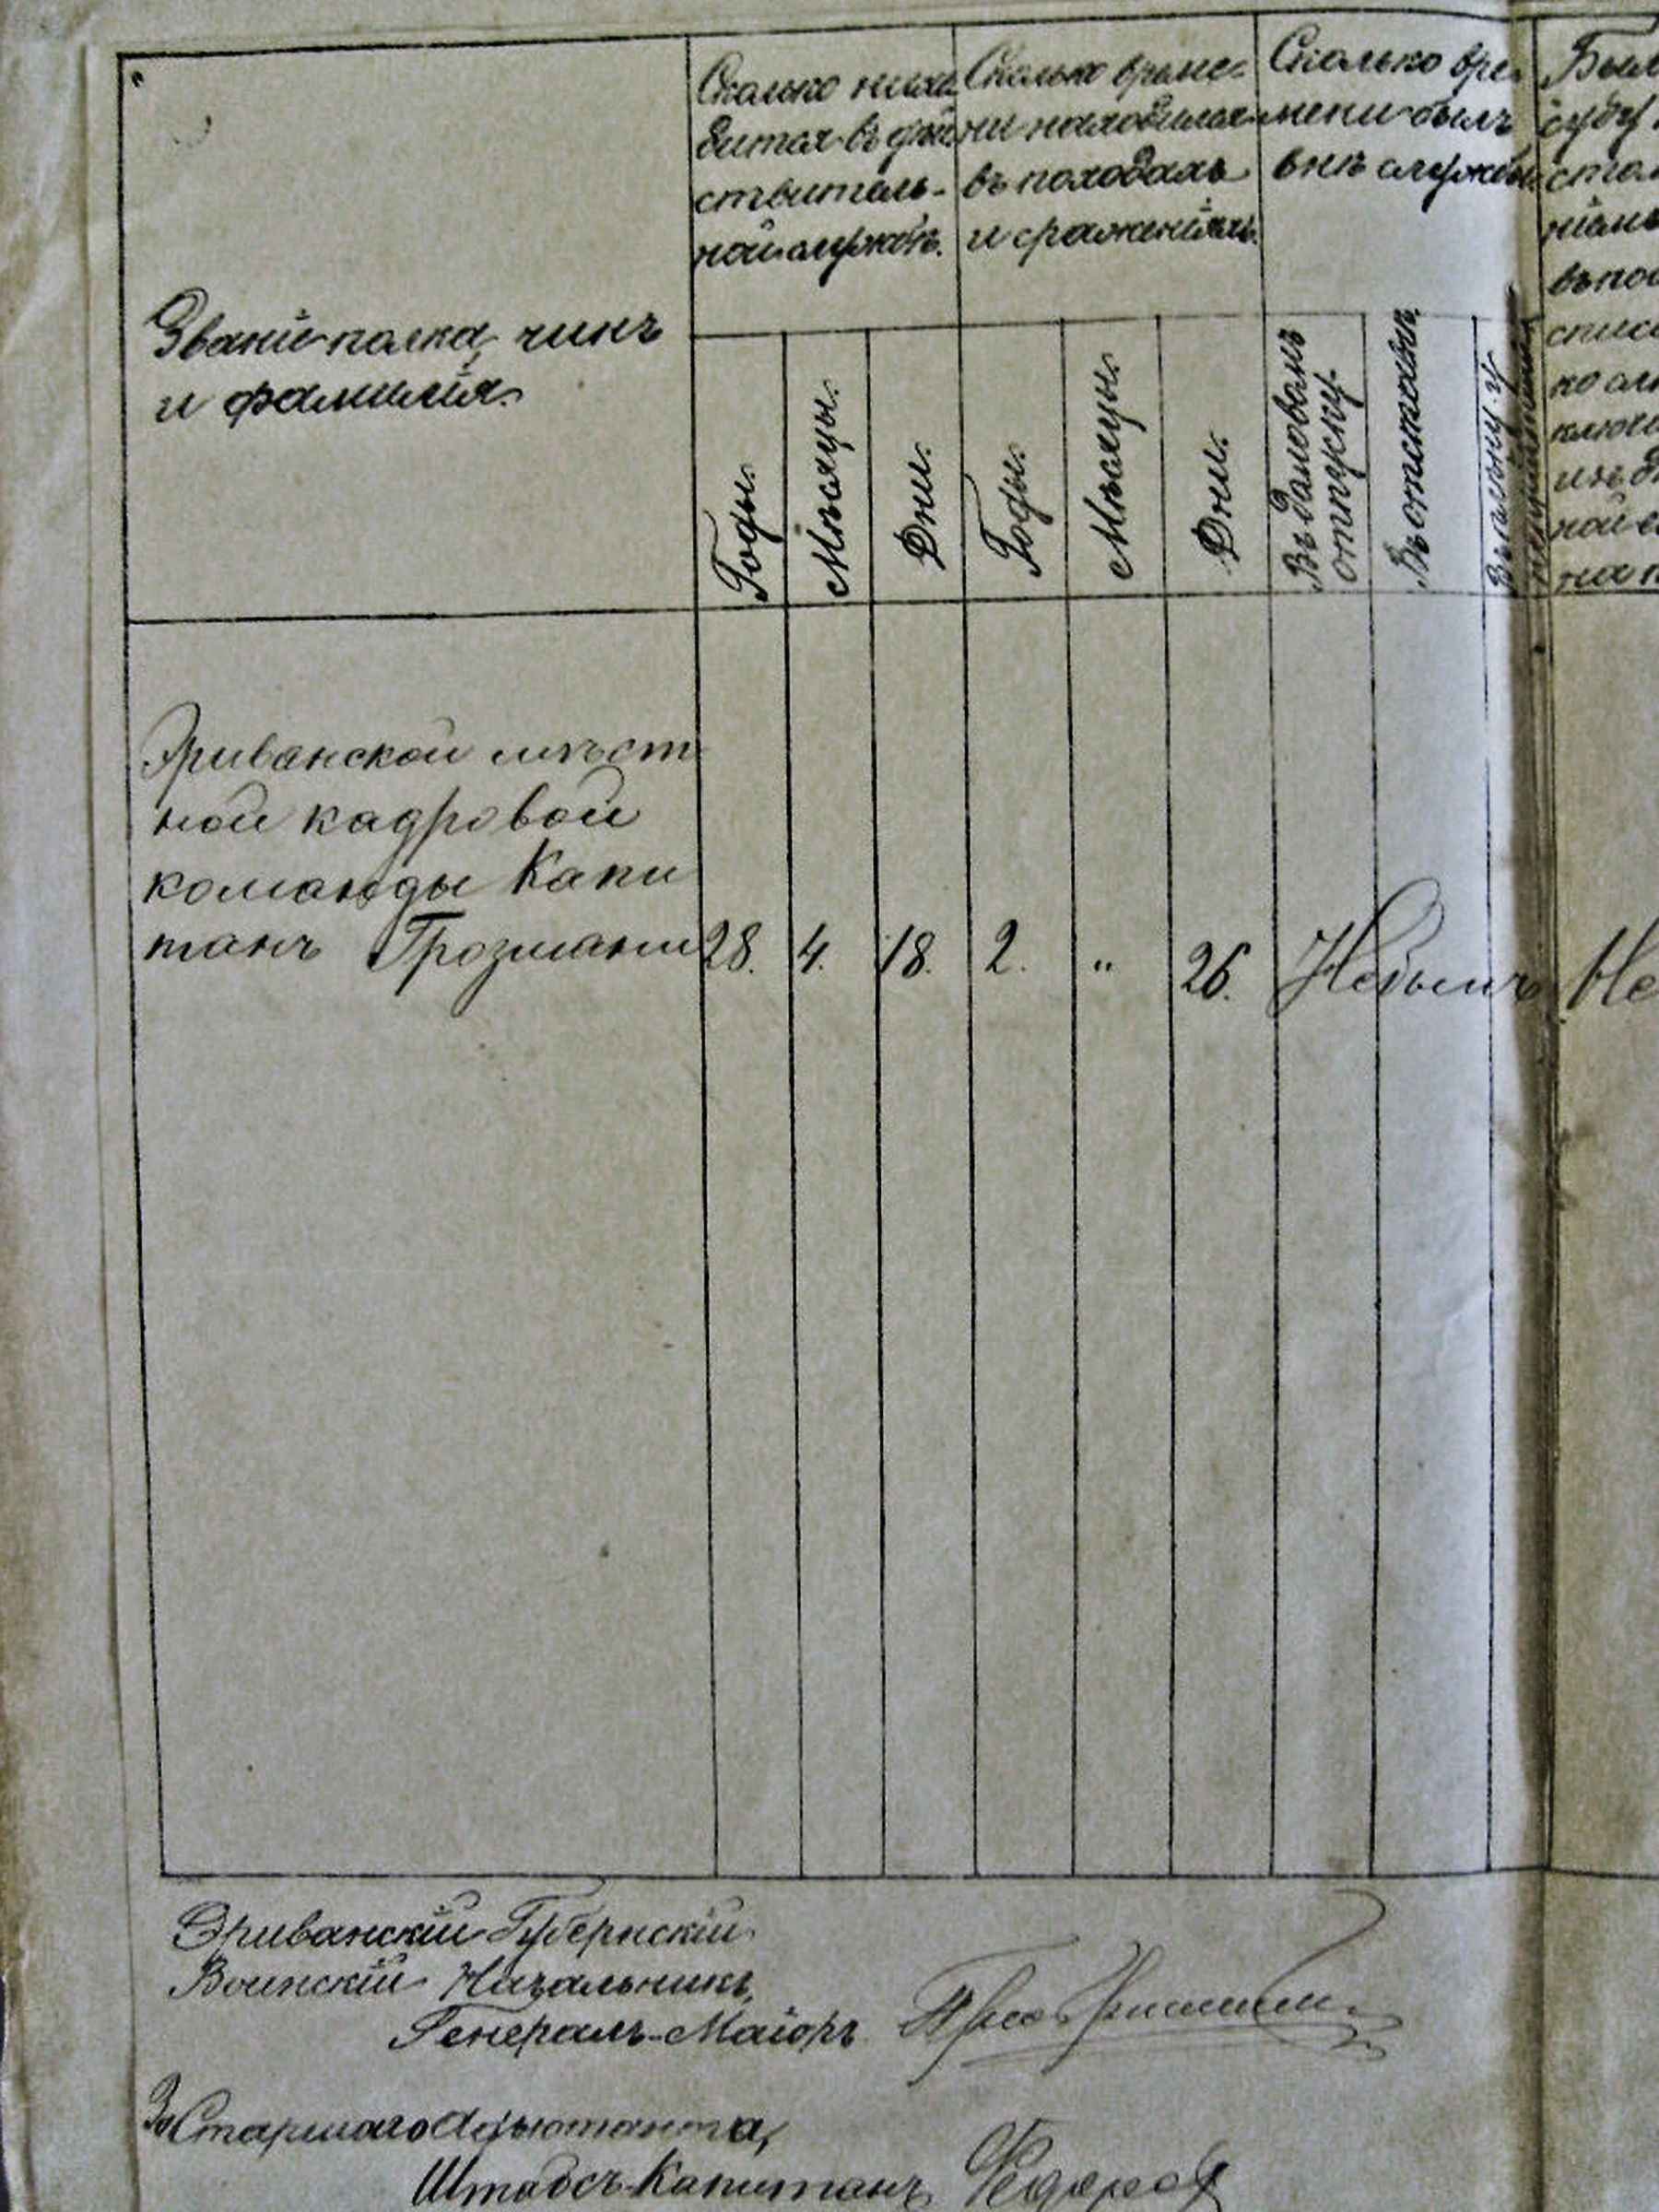 Званіе полка, чинъ
и фамилія.
Сколько нахо
дится въ дѣй
ствитель-
ной службѣ.
Годы.
Мѣсяцы.
Дни.
Сколько време-
ни находился
въ походахъ
и сраженіяхъ.
Годы.
Мѣсяцы.
Дни.
Сколько вре-
мени былъ
внѣ службы
Въ домовомъ
отпуску.
Въ отставкѣ.
Был
суду
ніямъ
ключ
на
Эриванской мѣст
ной кадровой
команды Капи
танъ Грозмани 28. 4. 18. 2. „ 26. Небылъ Не
Эриванскій Губернскій
Воинскій Начальникъ,
Генералъ-Маіоръ
За Старшаго Адъютанта,
Штабсъ-Капитанъ Федоров